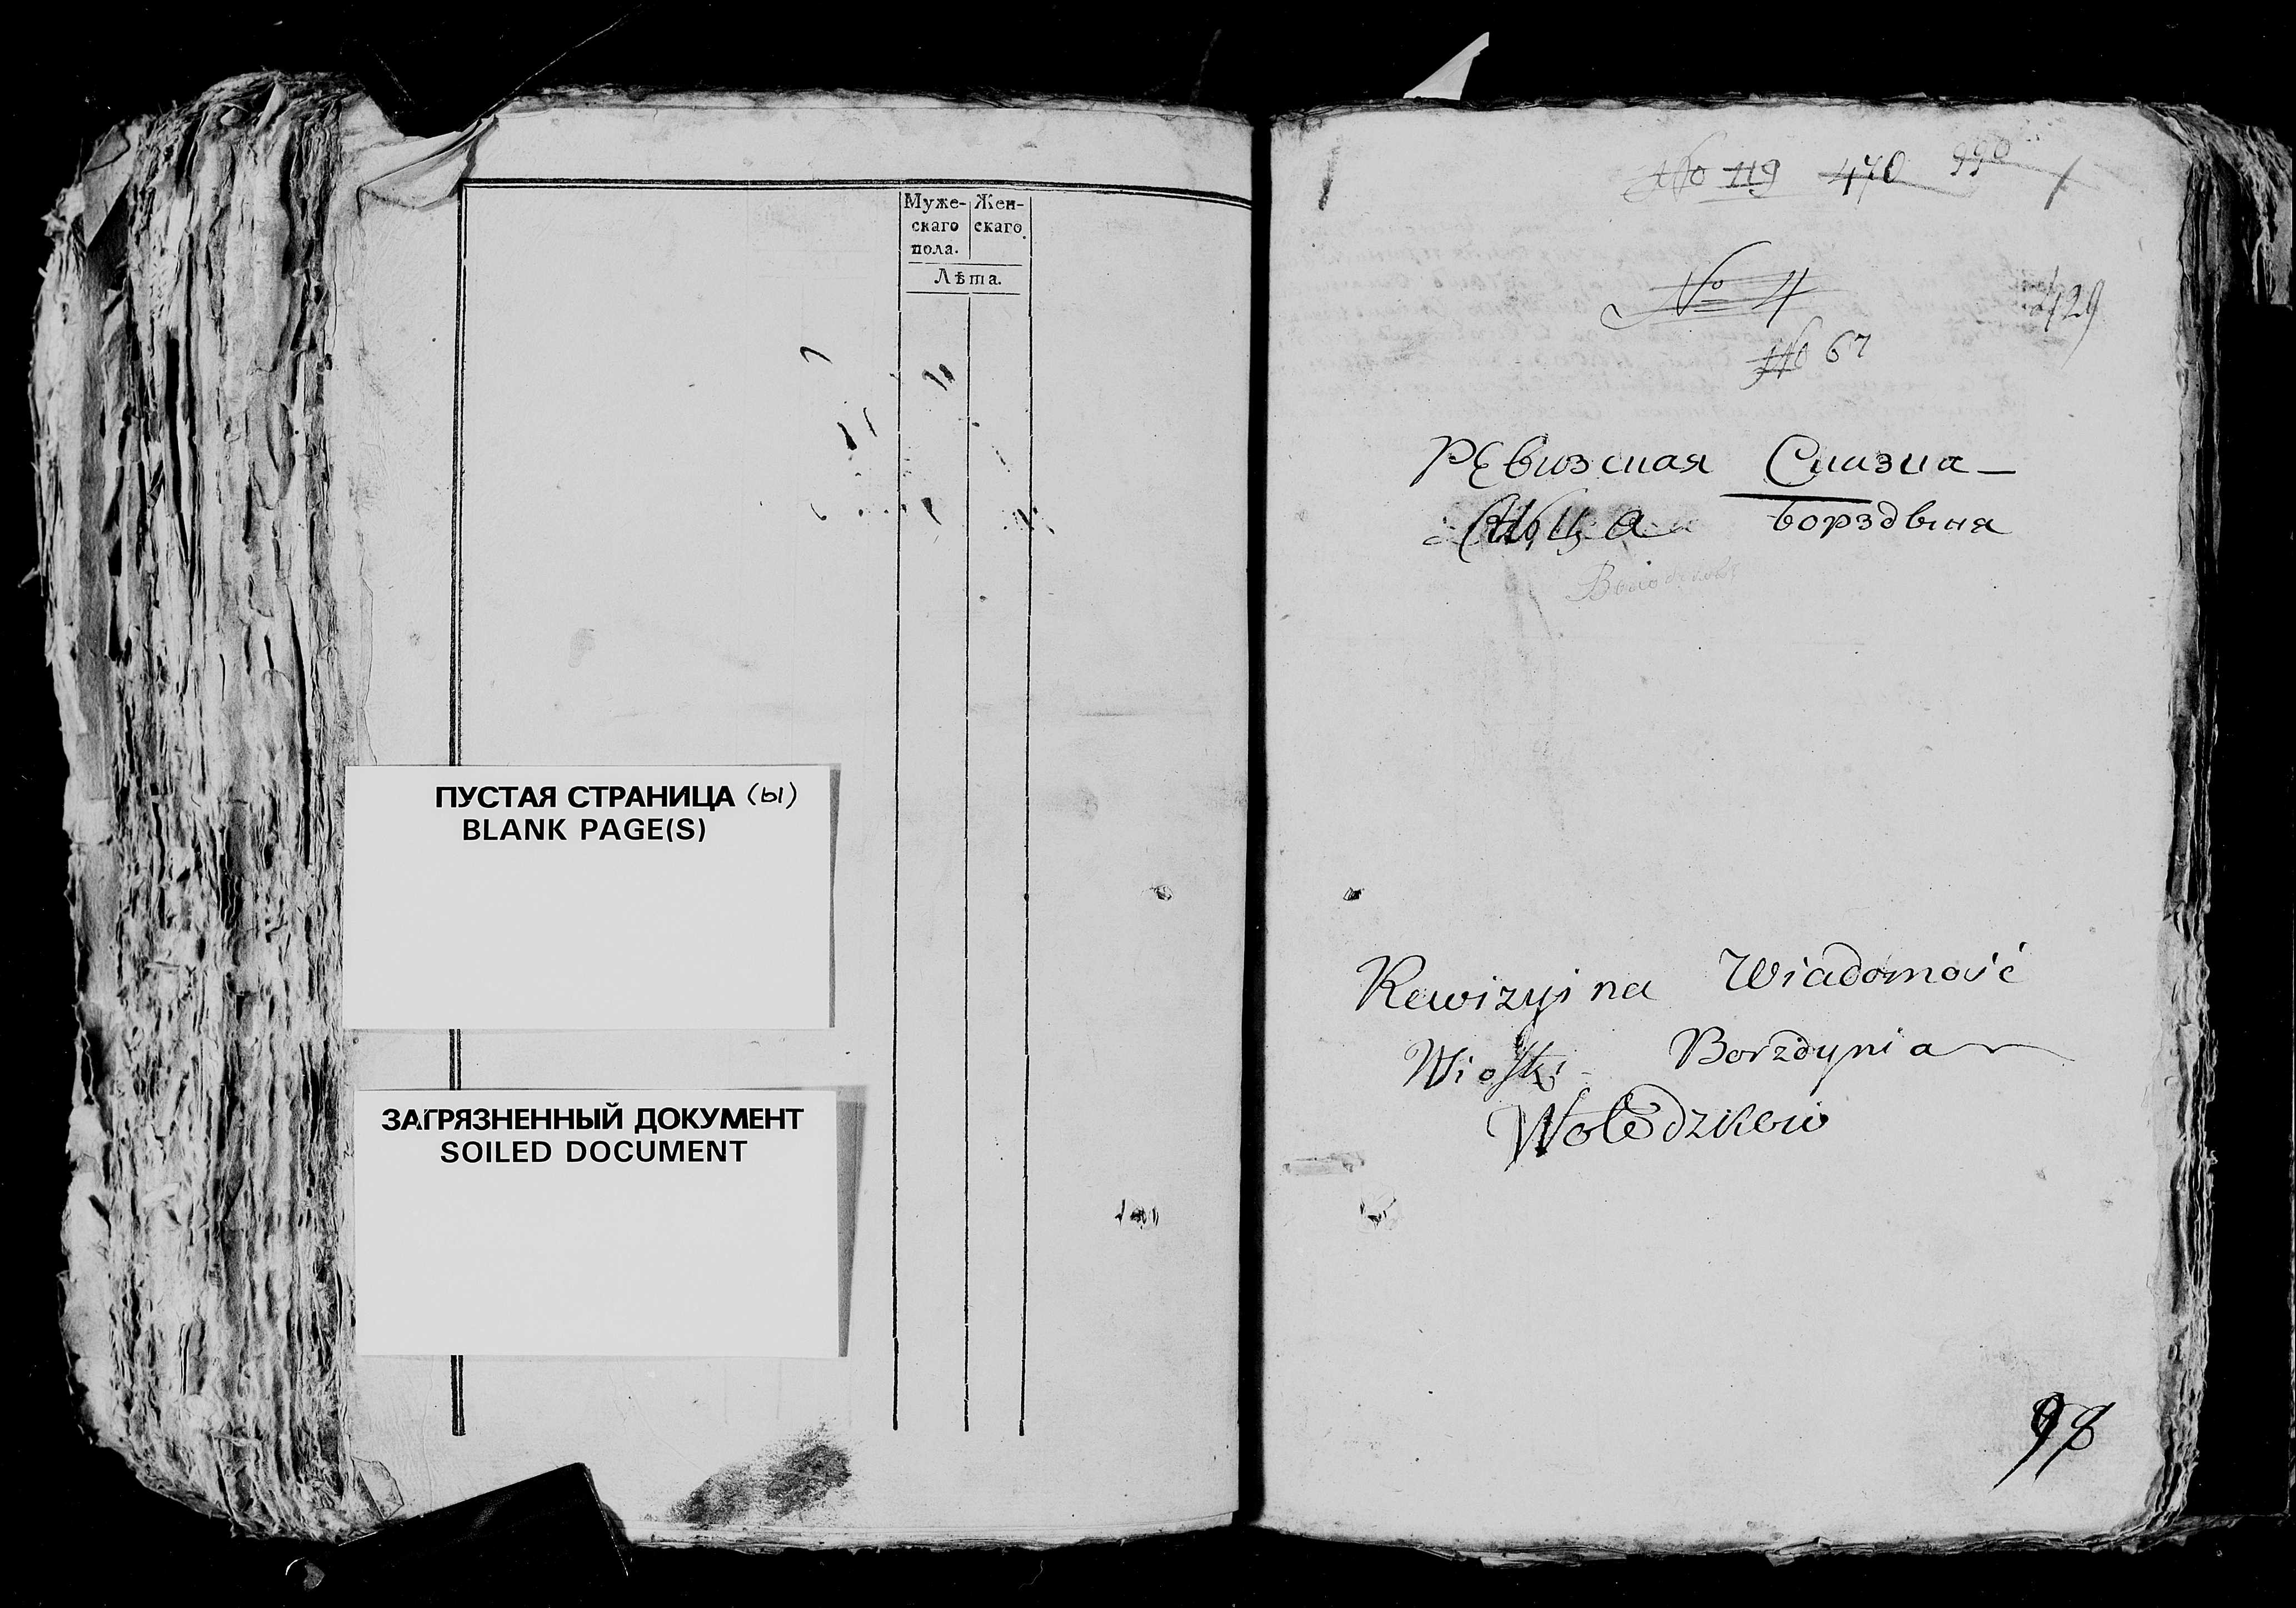 Муже- Жен-
скаго скаго.
пола.
Лѣта.
ПУСТАЯ СТРАНИЦА (ы)
BLANK PAGE(S)
ЗАГРЯЗНЕННЫЙ ДОКУМЕНТ
SOILED DOCUMENT
No 119 470 990
No 4
429
No 67
Ревизская Сказка
Борздыня
Rewizyjna Wiadomość
Wioski Borzdynia
Wołodzkow
98